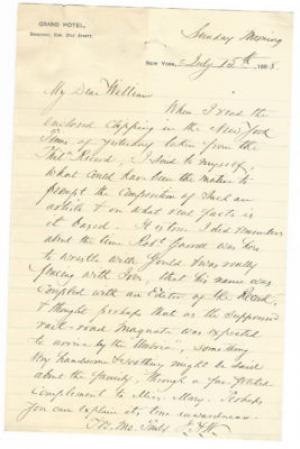 GRAND HOTEL,
Broadway, Cor. 31st Street.
Sunday Morning
New York, July 15th 188
My Dear William
When I read the
enclosed clipping in the New York
Times of yesterday taken from the
Phil. Record, I said to myself,
what could have been the motive to
prompt the composition of such an
article & on what real facts is
it based. It is true I did remember
about the time Robt Garrett was here
to wrestle with Gould & was really
fencing with Ives, that his name was
coupled with an Editor of the
& thought perhaps that as the supposed
rail-road Magnate was expected
to arrive by the "Umbria", something
very handsome & soothing might be said
about the family, through a
complement to Miss Mary. Perhaps
you can explain its true inwardness.